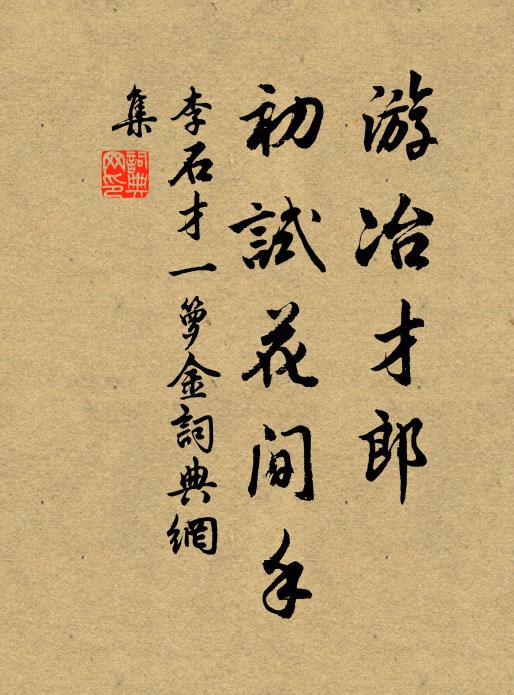 游冶才郎
初試花間手
李石才一籮金詞典網
集
詞典
网印